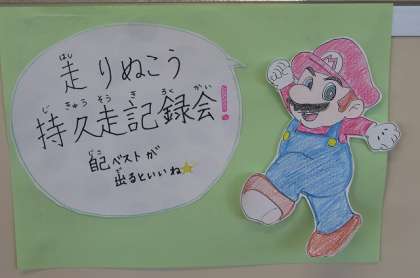 走りぬこう
持久走記録会!
自己ベストが
出るといいね